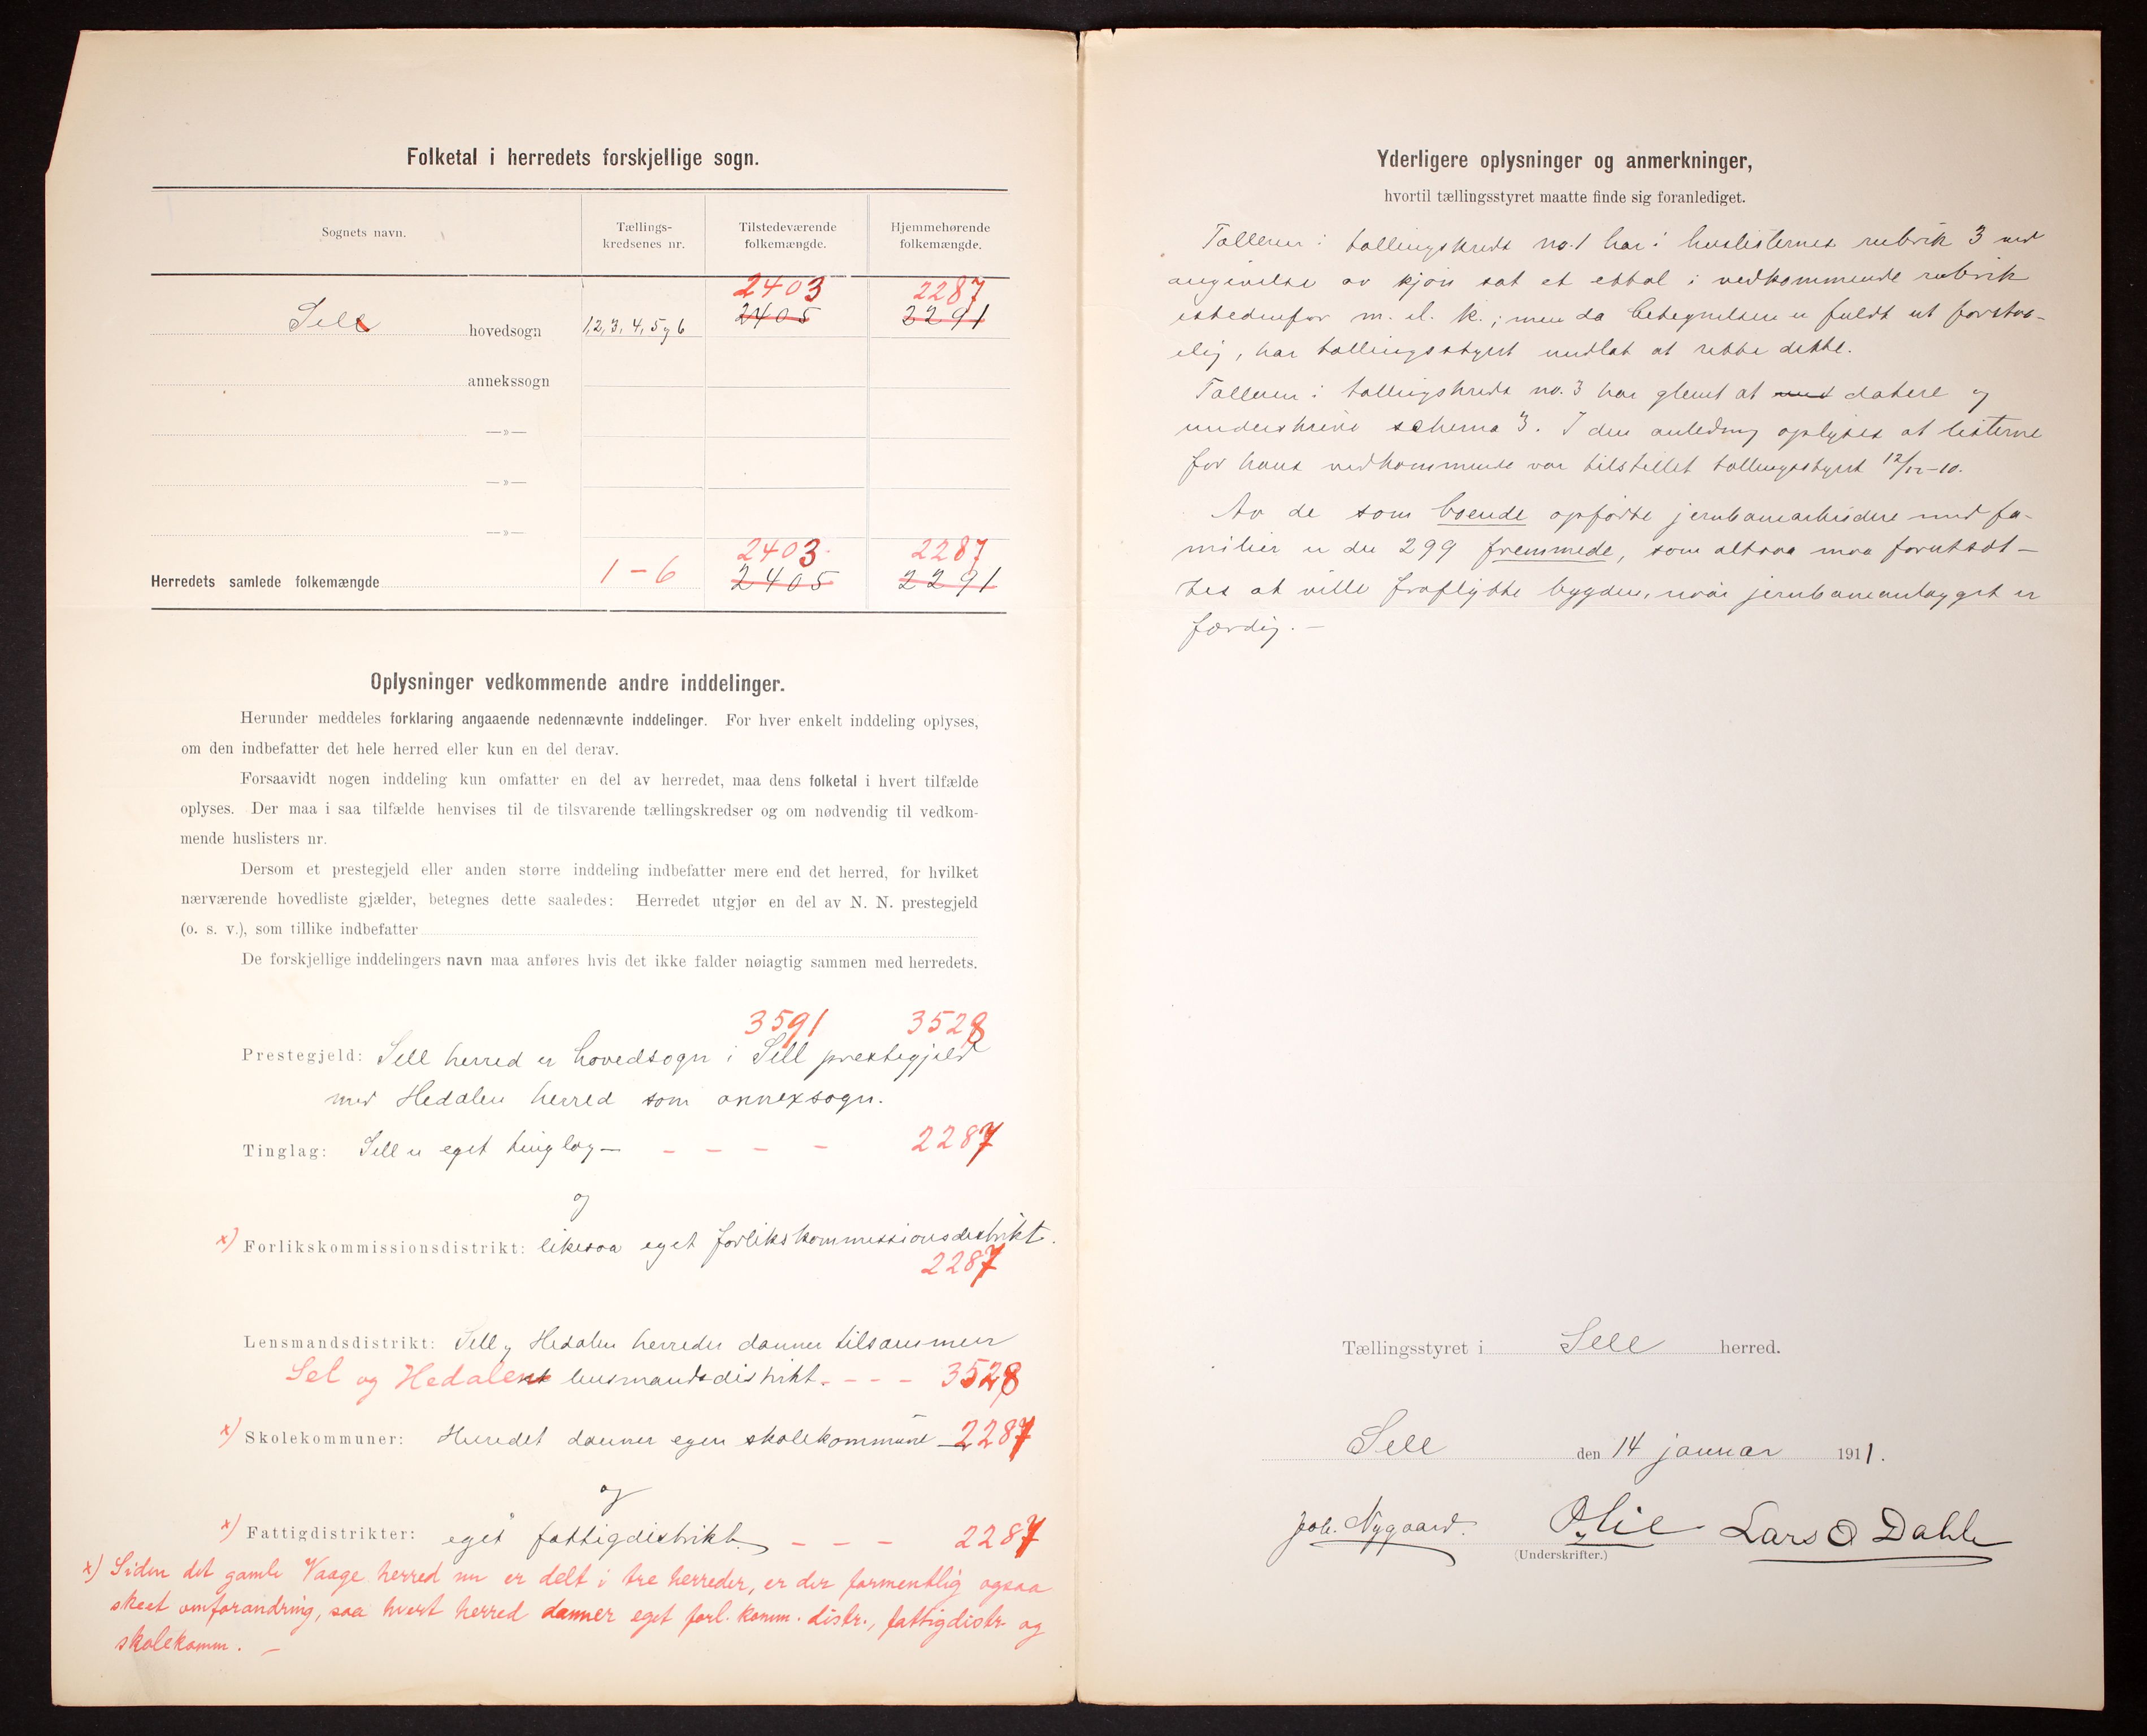 Folketal i herredets forskjellige sogn.
Sognets navn.
Tællings-
kredsenes nr.
Tilstedeværende
folkemængde.
Hjemmehørende
folkemængde.
2403 2287
Sell hovedsogn 1, 2, 3, 4, 5 og 6 2405 2291
annekssogn
—»—
—»—
—»—
2403 2287
Herredets samlede folkemængde 1 - 6 2405 2291
Oplysninger vedkommende andre inddelinger.
Herunder meddeles forklaring angaaende nedennævnte inddelinger. For hver enkelt inddeling oplyses,
om den indbefatter det hele herred eller kun en del derav.
Forsaavidt nogen inddeling kun omfatter en del av herredet, maa dens folketal i hvert tilfælde
oplyses. Der maa i saa tilfælde henvises til de tilsvarende tællingskredser og om nødvendig til vedkom-
mende huslisters nr.
Dersom et prestegjeld eller anden større inddeling indbefatter mere end det herred, for hvilket
nærværende hovedliste gjælder, betegnes dette saaledes: Herredet utgjør en del av N. N. prestegjeld
(o. s. v.), som tillike indbefatter
De forskjellige inddelingers navn maa anføres hvis det ikke falder nøiagtig sammen med herredets.
3591 3528
Prestegjeld: Sell herred er hovedsogn i Sell prestegjeld
med Hedalen herred som annexsogn.
Tinglag: Sell er eget tinglag — - - - - 2287
og
x) Forlikskommissionsdistrikt: likesaa eget forlikskommissionsdistrikt.
2287
Lensmandsdistrikt: Sell og Hedalen herreder danner tilsammen
Sel og Hedalens lensmandsdistrikt. - - - 3528
x) Skolekommuner: Herredet danner egen skolekommune — 2287
og
x) Fattigdistrikter: eget fattigdistrikt. - - - 2287
x) Siden det gamle Vaage herred nu er delt i tre herreder, er der formentlig ogsaa
skeet omforandring, saa hvert herred danner eget forl. komm. distr., fattigdistr. og
skolekomm. —
Yderligere oplysninger og anmerkninger,
hvortil tællingsstyret maatte finde sig foranlediget.
Tælleren i tællingskreds no. 1 har i huslisternes rubrik 3 ved
angivelse av kjøn sat et ettal i vedkommende rubrik
istedenfor m. el. k.; men da betegnelsen er fuldt ut forstaa-
elig, har tællingsstyret undlat at rette dette.
Tælleren i tællingskreds no. 3 har glemt at datere og
underskrive schema 3. I den anledning oplyses at listerne
for hans vedkommende var tilstillet tællingsstyret 12/12-10.
Av de som boende opførte jernbanearbeidere med fa-
milier er der 299 fremmede, som altsaa maa forutsæt-
tes at ville fraflytte bygden, naar jernbaneanlægget er
færdig. —
Tællingsstyret i Sell herred.
Sell den 14 januar 1911.
Joh. Nygaard. O Lie Lars O Dahle
(Underskrifter.)